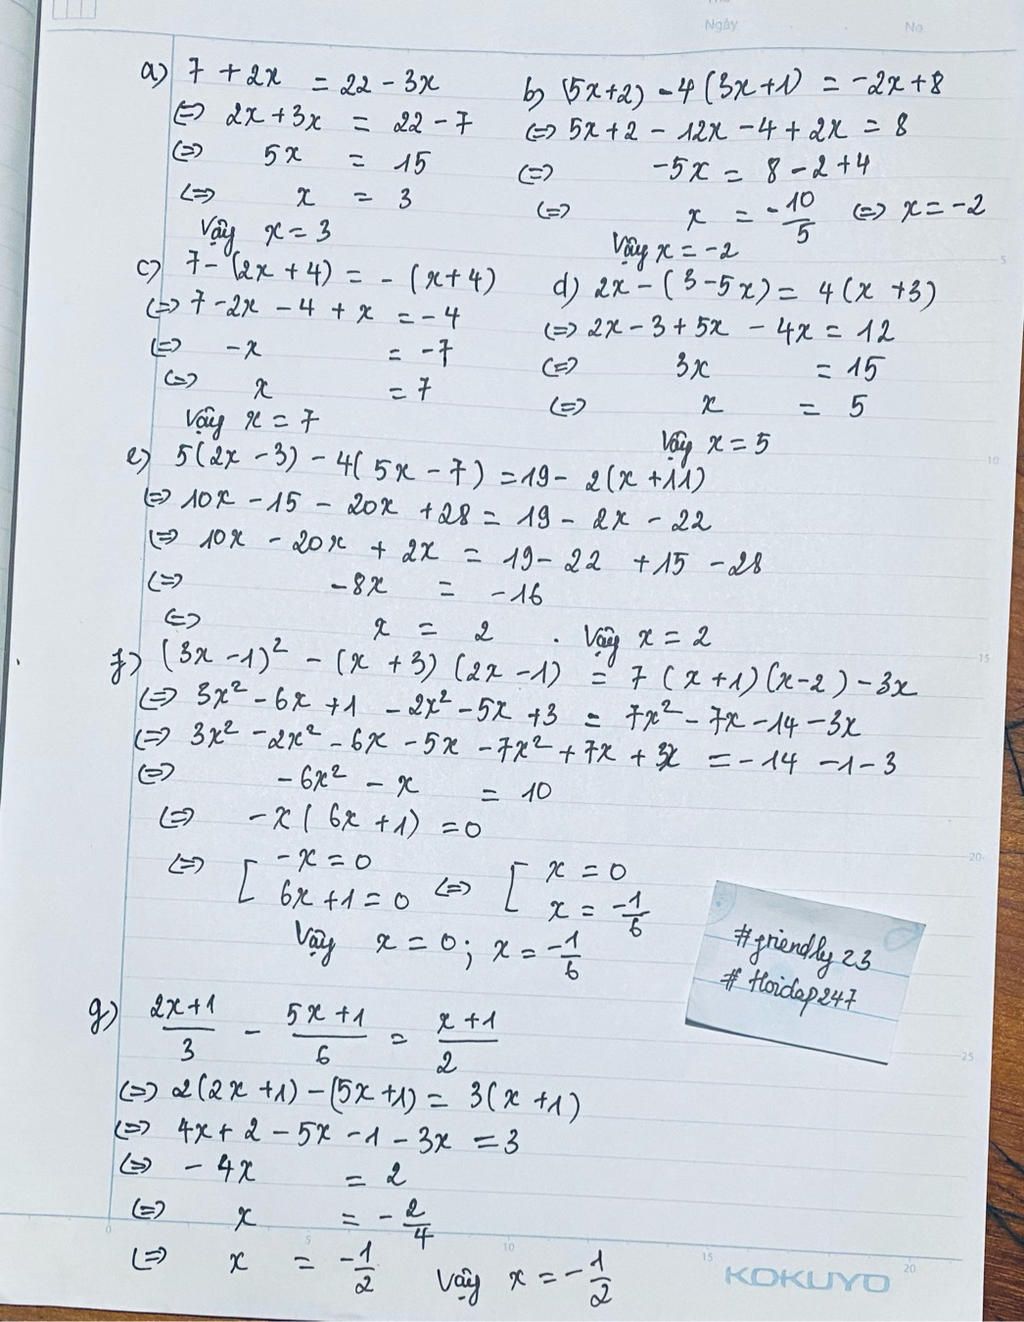 Ngày No.
a) 7 + 2x = 22 - 3x
⇔ 2x + 3x = 22 - 7
⇔ 5x = 15
⇔ x = 3
Vậy x = 3
b) (5x+2) - 4(3x+1) = -2x+8
⇔ 5x+2 - 12x - 4 + 2x = 8
⇔ -5x = 8 - 2 + 4
⇔ x = -10/5 ⇔ x = -2
Vậy x = -2
c) 7 - (2x + 4) = - (x+4)
⇔ 7 - 2x - 4 + x = -4
⇔ -x = -7
⇔ x = 7
Vậy x = 7
d) 2x - (3 - 5x) = 4(x + 3)
⇔ 2x - 3 + 5x - 4x = 12
⇔ 3x = 15
⇔ x = 5
Vậy x = 5
e) 5(2x - 3) - 4(5x - 7) = 19 - 2(x + 11)
⇔ 10x - 15 - 20x + 28 = 19 - 2x - 22
⇔ 10x - 20x + 2x = 19 - 22 + 15 - 28
⇔ -8x = -16
⇔ x = 2 . Vậy x = 2
f) (3x - 1)² - (x + 3)(2x - 1) = 7(x+1)(x-2) - 3x
⇔ 3x² - 6x + 1 - 2x² - 5x + 3 = 7x² - 7x - 14 - 3x
⇔ 3x² - 2x² - 6x - 5x - 7x² + 7x + 3x = -14 - 1 - 3
⇔ -6x² - x = 10
⇔ -x(6x + 1) = 0
⇔ [ -x = 0 ⇔ [ x = 0
6x + 1 = 0 x = -1/6
Vậy x = 0; x = -1/6
#friendly23
#Hoidap247
g) (2x+1)/3 - (5x+1)/6 = (x+1)/2
⇔ 2(2x + 1) - (5x + 1) = 3(x + 1)
⇔ 4x + 2 - 5x - 1 - 3x = 3
⇔ -4x = 2
⇔ x = -2/4
⇔ x = -1/2 Vậy x = -1/2
5
10
15
20
25
0 5 10 15 20
KOKUYO